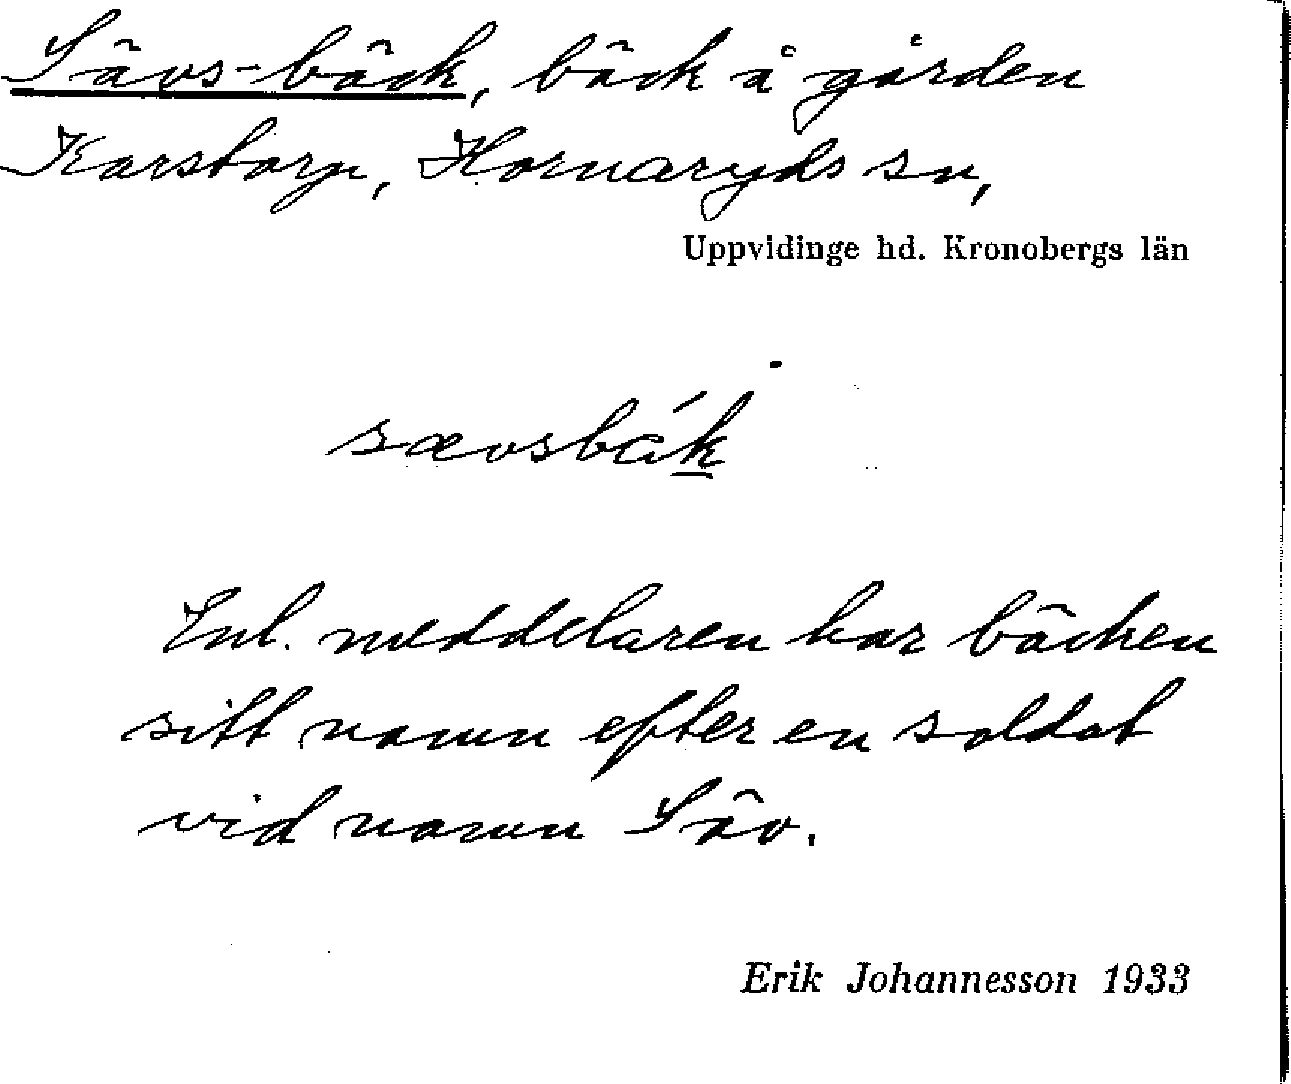 Sävs-bäck, bäck å gården
Karstorp, Hornaryds sn,
Uppvidinge hd. Kronobergs län
sævsbäk
Enl. meddelaren har bäcken
sitt namn efter en soldat
vid namn Säv.
Erik Johannesson 1933